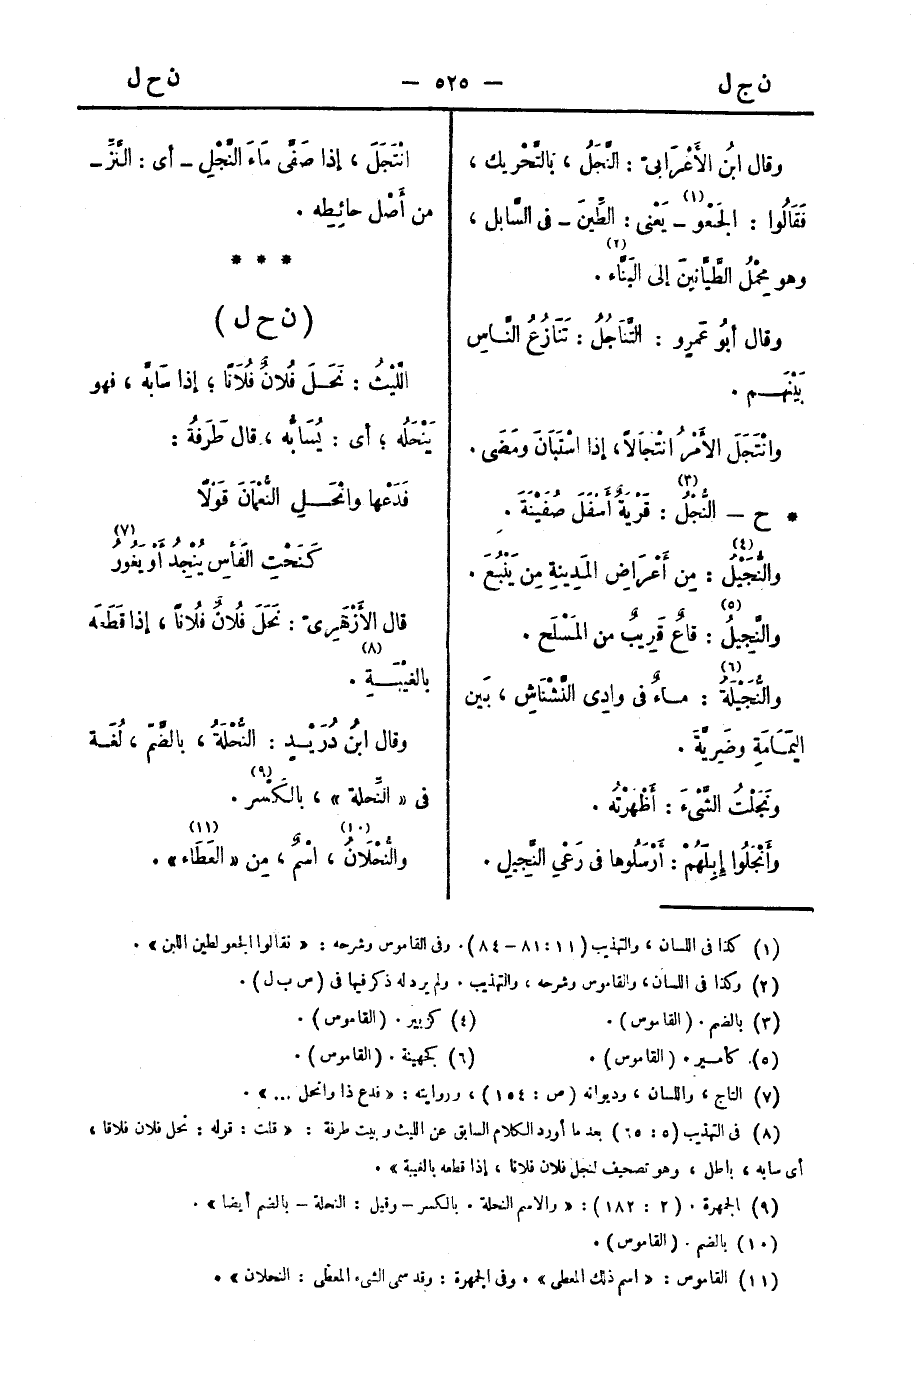 ن ج ل
— ٥٢٥ —
ن ح ل
وقال ابنُ الأَعْرَابىّ : النَّجَلُ ، بالتَّحْرِيك ،
فَقَالُوا : الجَعْوَ (١) ــ يَعْنِى : الطِّينَ ــ فى السَّابل ،
وهو مِحْمَلُ (٢) الطَّيَّانينَ إلى البَنَّاء .
وقال أبُو عَمرٍو : التَّنَاجُلُ : تَنَازُعُ النَّاسِ
بَيْنَهم .
وانْتَجَلَ الأَمْرُ انْتِجَالاً ، إذا اسْتَبَانَ ومَضَى .
* ح ــ النُّجْلُ (٣) : قَرْيَةٌ أَسْفَلَ صُفَيْنَةَ .
والنُّجَيْلُ (٤) : مِن أَعْرَاضِ المَدِينةِ مِن يَنْبُعَ .
والنَّجِيلُ (٥) : قاعٌ قَرِيبٌ من المَسْلَح .
والنُّجَيْلَةُ (٦) : ماءٌ فى وادِى النَّشْنَاشِ ، بَين
اليَمَامَةِ وضَرِيَّةَ .
ونَجَلْتُ الشَّىْءَ : أَظْهَرْتُه .
وأَنْجَلُوا إبِلَهُمْ : أَرْسَلُوها فى رَعْىِ النَّجِيلِ .
انْتَجَلَ ، إذا صَفَّى مَاءَ النَّجْلِ ــ أى : النَّزِّ ــ
من أَصْل حائِطِه .
* * *
( ن ح ل )
اللَّيْثُ : نَحَلَ فُلانٌ فُلَانًا ؛ إذا سَابَّه ، فهو
يَنْحَلُه ؛ أى : يُسَابُّه ، قال طَرَفَةُ :
فَدَعْها وانْحَلِ النُّعْمَانَ قَوْلًا
كَنَحْتِ الفَأْسِ يُنْجِدُ أو يَغُورُ (٧)
قال الأَزْهَرِىّ : نَحَلَ فُلانٌ فُلاناً ، إذا قَطَعَه
بالغَيْبَةِ (٨) .
وقال ابنُ دُرَيْدٍ : النُّحْلَةُ ، بالضَّمّ ، لُغَة
فى « النِّحلة » ، بالكَسْر (٩) .
والنُّحْلَانُ (١٠) ، اسْمٌ ، مِن « العَطَاء » (١١) .
(١) كذا فى اللسان ، والتهذيب (١١ : ٨١ – ٨٤) . وفى القاموس وشرحه : « نقالوا الجعو لطين اللبن » .
(٢) وكذا فى اللسان ، والقاموس وشرحه ، والتهذيب . ولم يرد له ذكر فيها فى (س ب ل) .
(٣) بالضم . (القاموس) .
(٤) كزبير . (القاموس) .
(٥) كأمير . (القاموس) .
(٦) كجهينة . (القاموس) .
(٧) التاج ، واللسان ، وديوانه (ص : ١٥٤) ، وروايته : « فدع ذا وانحل ... » .
(٨) فى التهذيب (٥ : ٦٥) بعد ما أورد الكلام السابق عن الليث وبيت طرفة : « قلت : قوله : نحل فلان فلانا ،
أى سابه ، باطل ، وهو تصحيف لنجل فلان فلانا ، إذا قطعه بالغيبة » .
(٩) الجمهرة . (٢ : ١٨٢) : « والاسم النحلة . بالكسر – وقيل : النحلة – بالضم أيضا » .
(١٠) بالضم . (القاموس) .
(١١) القاموس : « اسم ذلك المعطى » . وفى الجمهرة : وقد سمى الشىء المعطى : النحلان » .